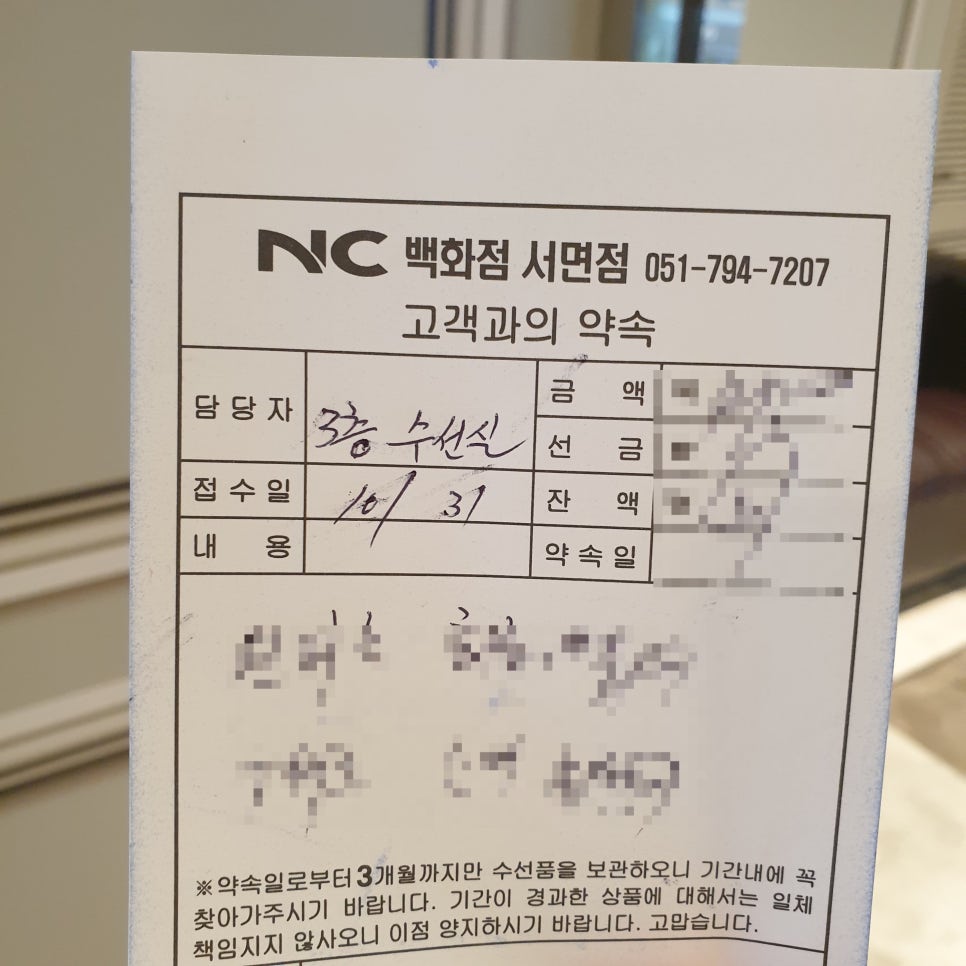 NC 백화점 서면점 051-794-7207
고객과의 약속
담당자 3층 수선실 금액
선금
접수일 10/31 잔액
내용 약속일
※약속일로부터 3개월까지만 수선품을 보관하오니 기간내에 꼭
찾아가주시기 바랍니다. 기간이 경과한 상품에 대해서는 일체
책임지지 않사오니 이점 양지하시기 바랍니다. 고맙습니다.